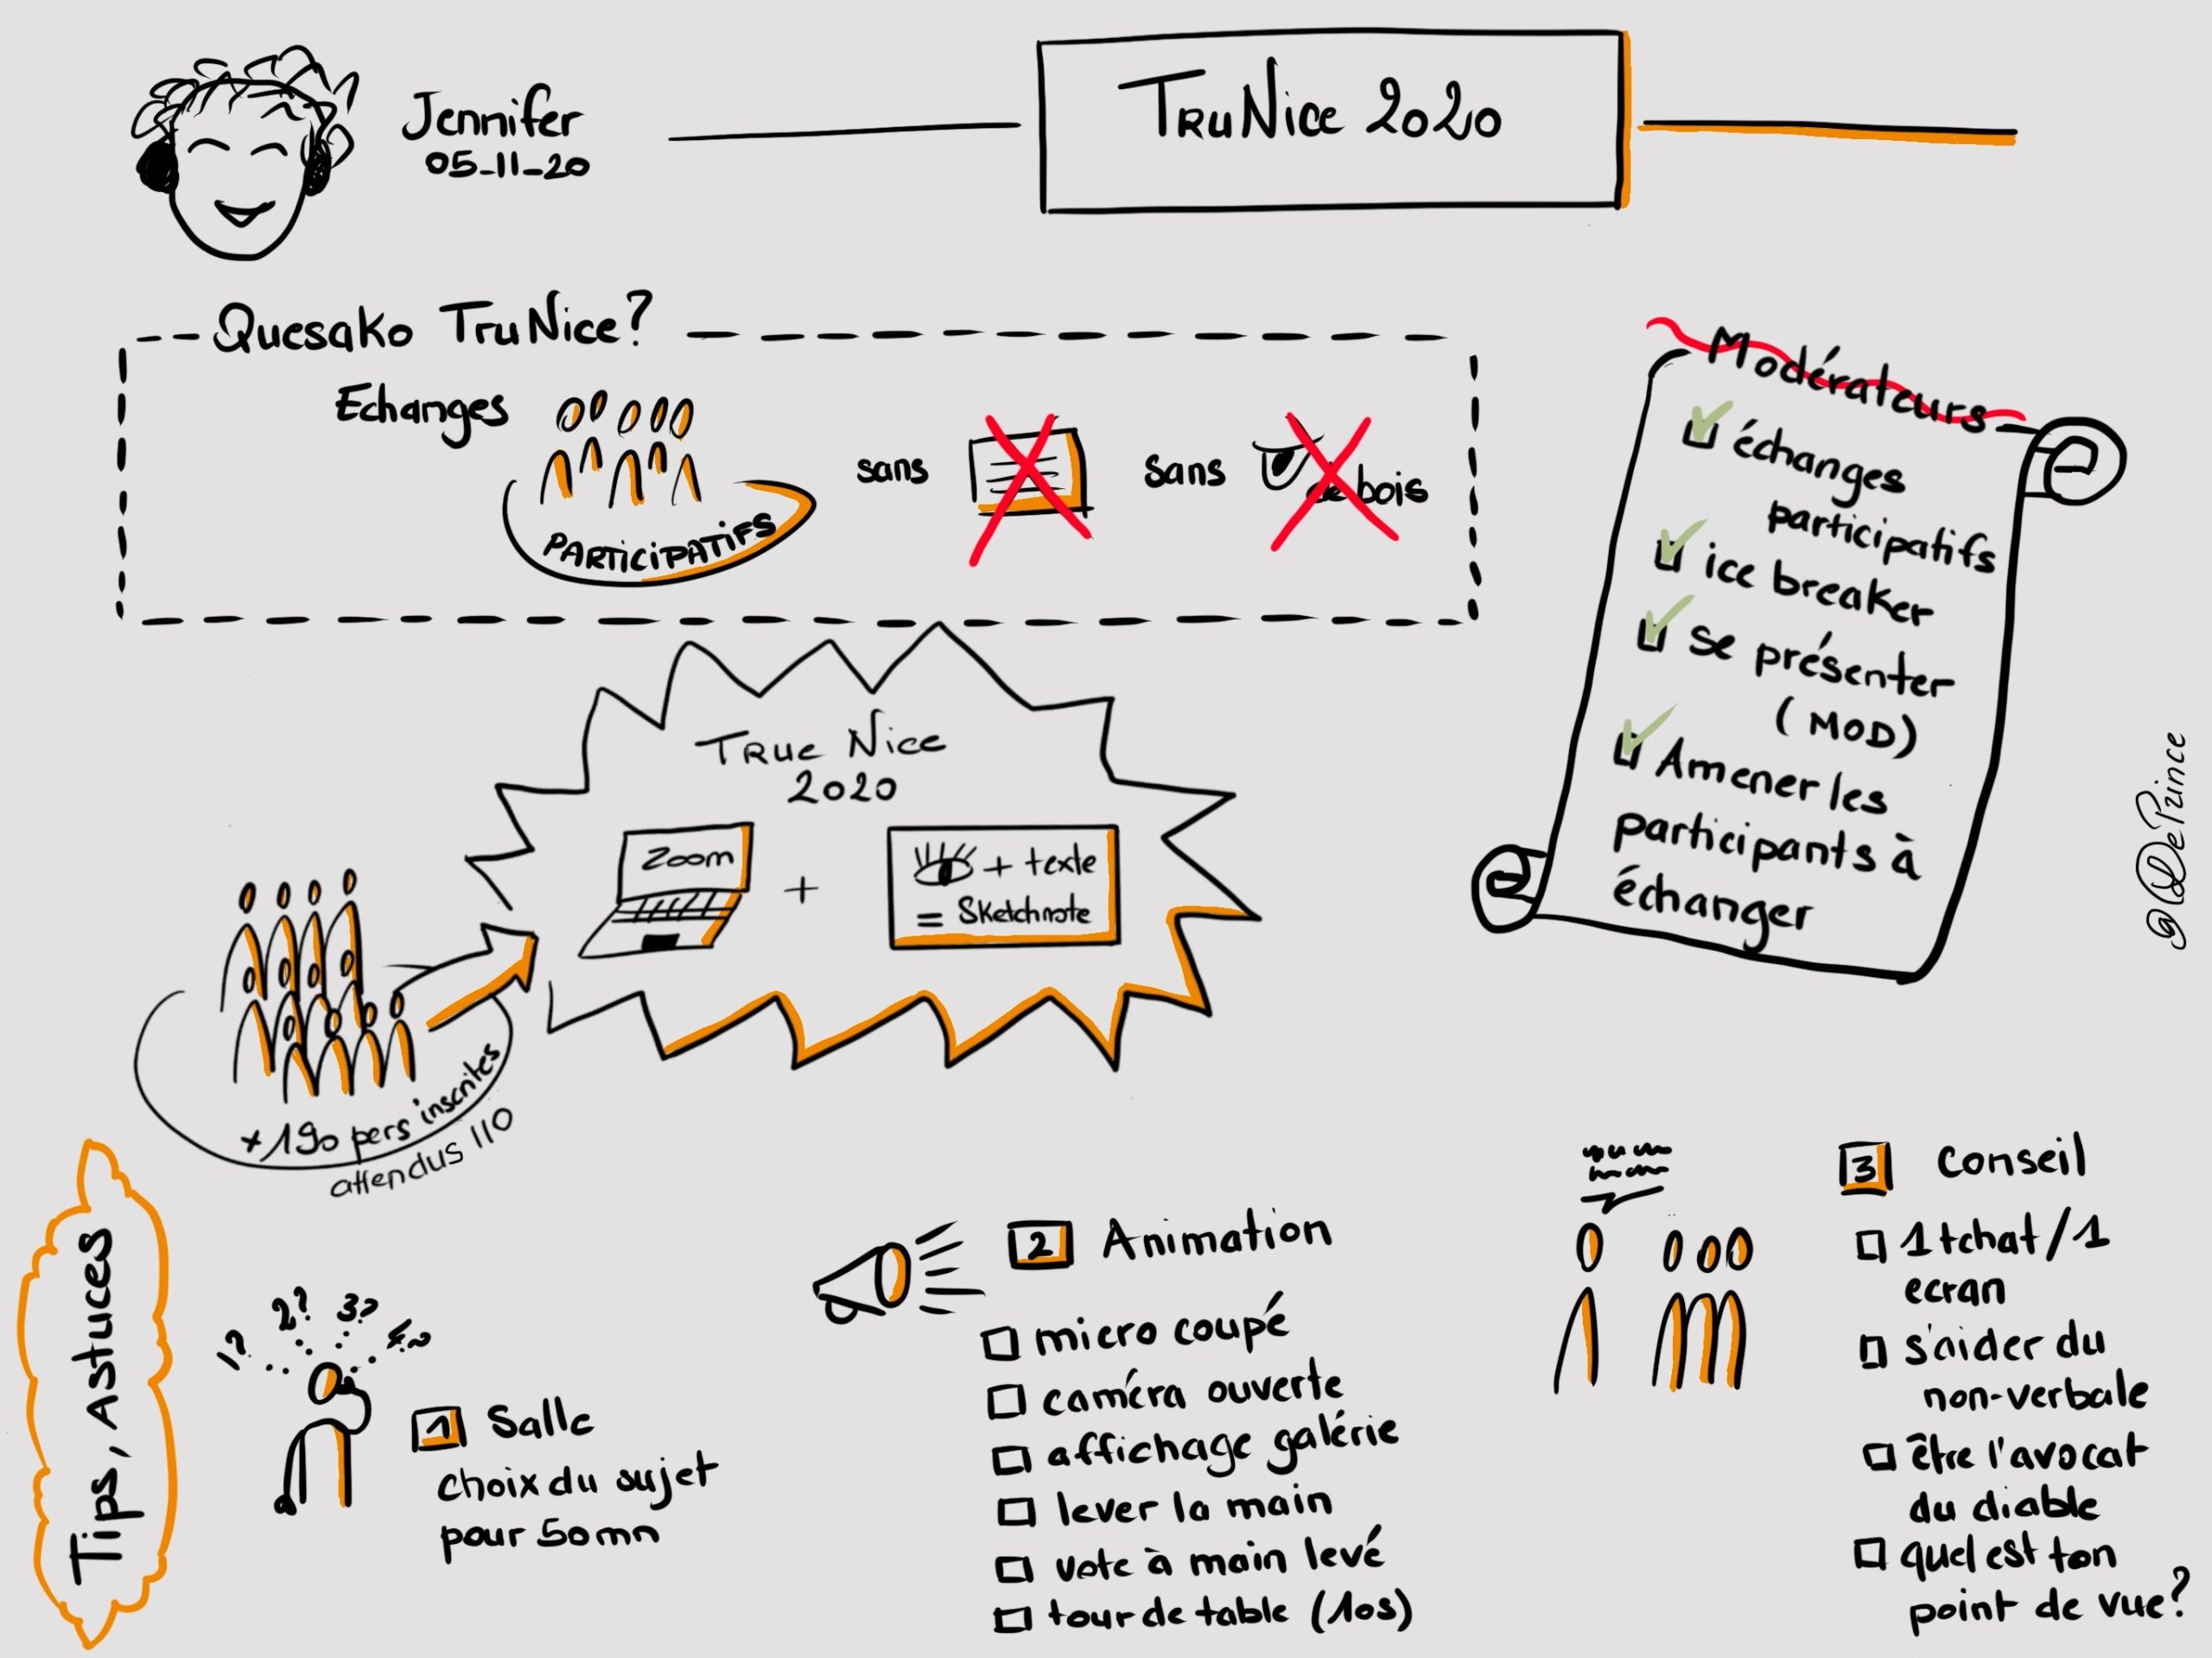 Jennifer
05-11-20
TruNice 2020
Quesako TruNice?
Echanges
PARTICIPATIFS
sans
sans
de bois
Modérateurs
échanges
participatifs
ice breaker
se présenter
(MOD)
Amener les
participants à
échanger
@LePrince
True Nice
2020
Zoom
+
+ texte
= Sketchnote
+190 pers inscrites
attendus 110
Tips, Astuces
1? 2? 3? 4?
1 Salle
choix du sujet
pour 50mn
2 Animation
micro coupé
caméra ouverte
affichage galérie
lever la main
vote à main levé
tour de table (10s)
3 Conseil
1 tchat/1
ecran
s'aider du
non-verbale
être l'avocat
du diable
quel est ton
point de vue?